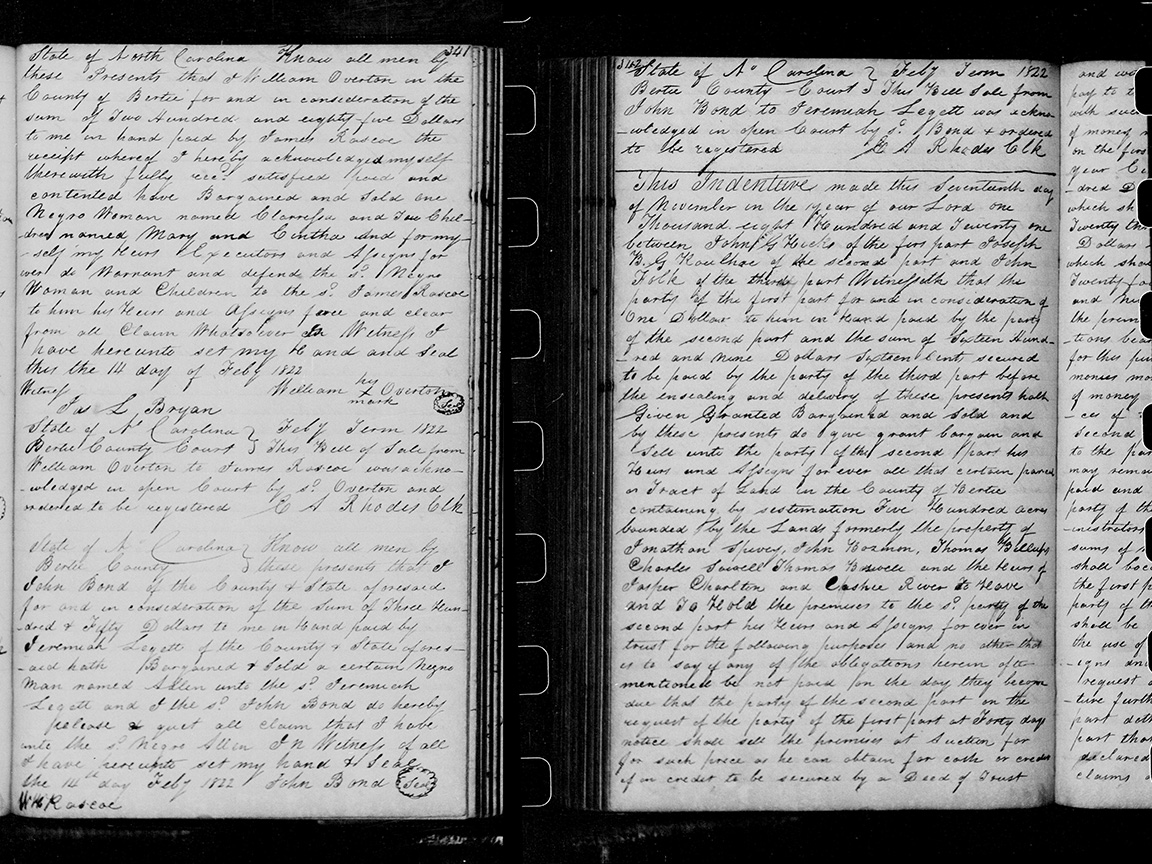 341
State of North Carolina Know all men by
these Presents that I William Overton in the
County of Bertie for and in consideration of the
sum of Two Hundred and eighty five Dollars
to me in hand paid by James Rascoe the
receipt whereof I hereby acknowledged myself
therewith fully recd. satisfied paid and
contented have Bargained and Sold one
Negro Woman named Clarrissa and Two Chel-
dren named Mary and Cintha And for my-
-self my Heirs Executors and Assigns for
ever do Warrant and defend the sd. Negro
Woman and Children to the sd. James Rascoe
to him his Heirs and Assigns free and clear
from all Claim Whatsoever In Witness I
have hereunto set my Hand and Seal
this the 14 day of Feby 1822
Witness William his X mark Overton Seal
Jas L Bryan
State of No Carolina } Feby Term 1822
Bertie County Court } This Bill of Sale from
William Overton to James Rascoe was ackno-
-wledged in open Court by sd. Overton and
ordered to be registered E A Rhodes Clk
State of No Carolina } Know all men by
Bertie County } these presents that I
John Bond of the County & State aforesaid
for and in consideration of the Sum of Three Hun-
-dred & Fifty Dollars to me in Hand paid by
Jeremiah Legett of the County & State afores-
-aid hath Bargained & Sold a certain Negro
Man named Allen unto the sd. Jeremiah
Legett and I the sd. John Bond do hereby
release & quit all claim that I have
unto the sd. Negro Allen In Witness of all
I have hereunto set my hand & Seal
the 14th day Feby 1822 John Bond Seal
Wh Rascoe
342
State of No Carolina } Feby Term 1822
Bertie County Court } This Bill Sale from
John Bond to Jeremiah Legett was ackno-
-wledged in open Court by sd. Bond & ordered
to be registered E A Rhodes Clk
This Indenture made this Seventeenth day
of November in the year of our Lord one
Thousand eight Hundred and Twenty one
between John G Hooks of the firs part Joseph
B. G Roulhac of the second part and John
of the third part Witnesseth that the
party of the first part for and in consideration of
One Dollar to him in Hand paid by the party
of the second part and the sum of Sixteen Hund-
-red and nine Dollars Sixteen Cents secured
to be paid by the party of the third part before
the ensealing and delivery of these presents hath
Given Granted Bargained and Sold and
by these presents do give grant bargain and
Sell unto the party of the second part his
Heirs and Assigns for ever all that certain parcel
or Tract of Land in the County of Bertie
containing by estimation Five Hundred acres
bounded by the Lands formerly the property of
Jonathan Spivey, John Thomas Billups
Charles Sowell Thomas and the Heirs of
Jasper Charlton and Cashie River To Have
and To Hold the premises to the sd. party of the
second part his Heirs and Assigns for ever in
trust for the following purposes and no other that
is to say if any of the obligations herein afte
mentioned be not paid on the day they becom
due that the party of the second part on the
request of the party of the first part at Forty days
notice shall sell the premises at Auction for
for such price as he can obtain for cash or credit
if on credit to be secured by a Deed of Trust
and
pay to
with such
of money
on the firs
year
-dred D
which sh
Twenty
Dollars
which shall
Twenty
and
the prem
-tions
for this pu
monies
of money
-ces of
second
to the par
may remai
paid and
party of th
-nistrators
sums of
shall bec
the first p
parts of th
shall be
the use of
-igns and
request
-ture furth
part
part that
declared
claims